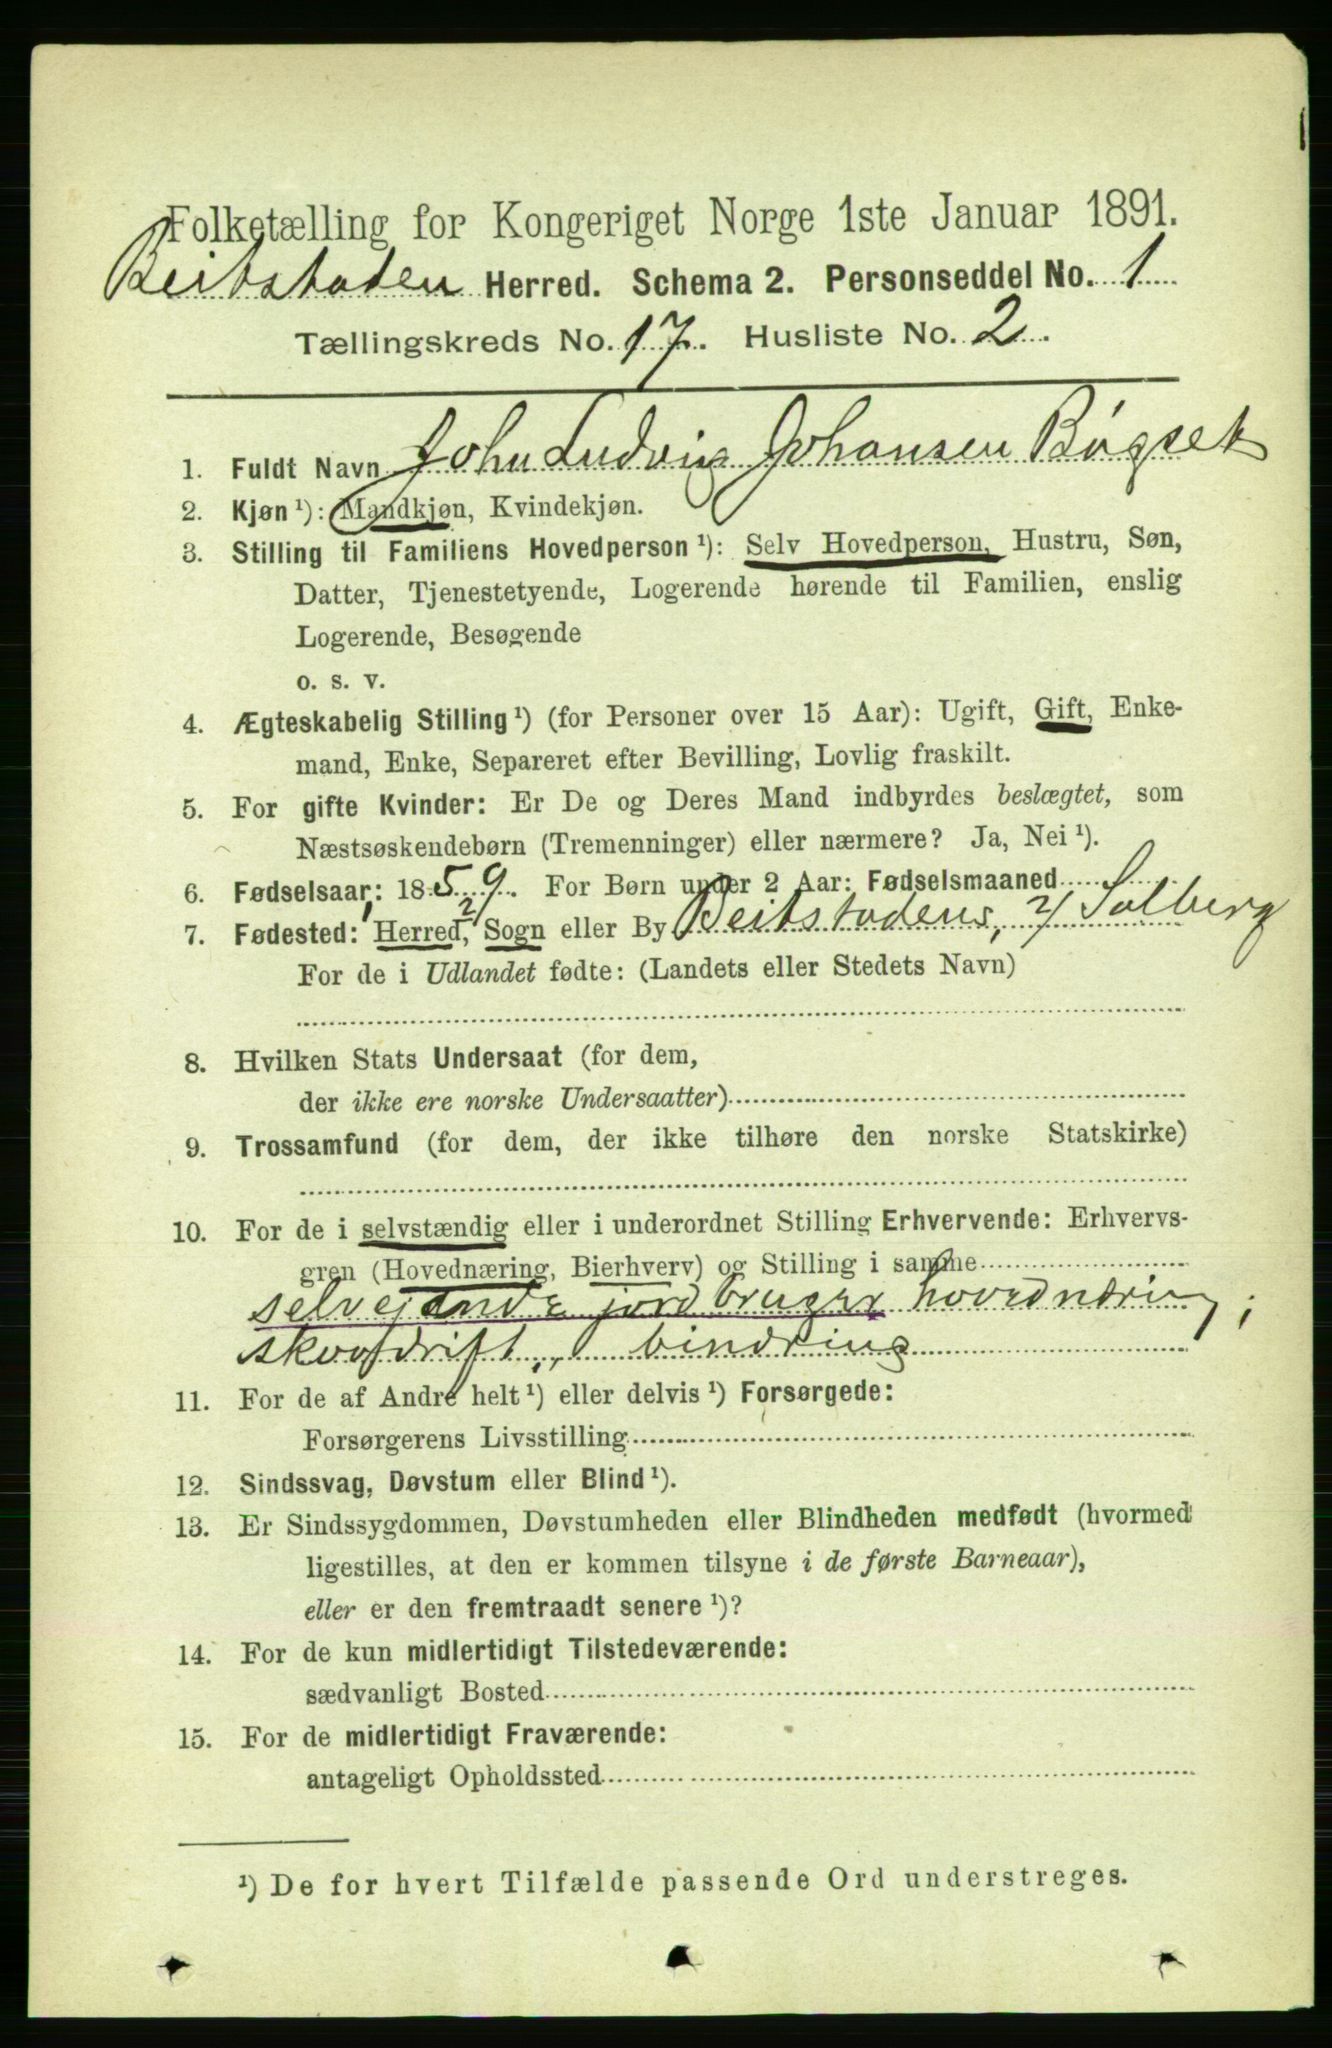 Folketælling for Kongeriget Norge 1ste Januar 1891.
Beitstaden Herred. Schema 2. Personseddel No. 1
Tællingskreds No. 17. Husliste No. 2.
1. Fuldt Navn John Ludvig Johansen Bøgset
2. Kjøn ¹): Mandkjøn, Kvindekjøn.
3. Stilling til Familiens Hovedperson ¹): Selv Hovedperson, Hustru, Søn,
Datter, Tjenestetyende, Logerende hørende til Familien, enslig
Logerende, Besøgende
o. s. v.
4. Ægteskabelig Stilling ¹) (for Personer over 15 Aar): Ugift, Gift, Enke-
mand, Enke, Separeret efter Bevilling, Lovlig fraskilt.
5. For gifte Kvinder: Er De og Deres Mand indbyrdes beslægtet, som
Næstsøskendebørn (Tremenninger) eller nærmere? Ja, Nei ¹).
6. Fødselsaar: 1859. For Børn under 2 Aar: Fødselsmaaned
7. Fødested: Herred, 2/ Sogn eller By Beitstadens, 2/ Solberg
For de i Udlandet fødte: (Landets eller Stedets Navn)
8. Hvilken Stats Undersaat (for dem,
der ikke ere norske Undersaatter)
9. Trossamfund (for dem, der ikke tilhøre den norske Statskirke)
10. For de i selvstændig eller i underordnet Stilling Erhvervende: Erhvervs-
gren (Hovednæring, Bierhverv) og Stilling i samme
selvejende jordbruger hovednæring;
skovdrift, binæring
11. For de af Andre helt ¹) eller delvis ¹) Forsørgede:
Forsørgerens Livsstilling
12. Sindssvag, Døvstum eller Blind ¹).
13. Er Sindssygdommen, Døvstumheden eller Blindheden medfødt (hvormed
ligestilles, at den er kommen tilsyne i de første Barneaar),
eller er den fremtraadt senere ¹)?
14. For de kun midlertidigt Tilstedeværende:
sædvanligt Bosted
15. For de midlertidigt Fraværende:
antageligt Opholdssted
¹) De for hvert Tilfælde passende Ord understreges.